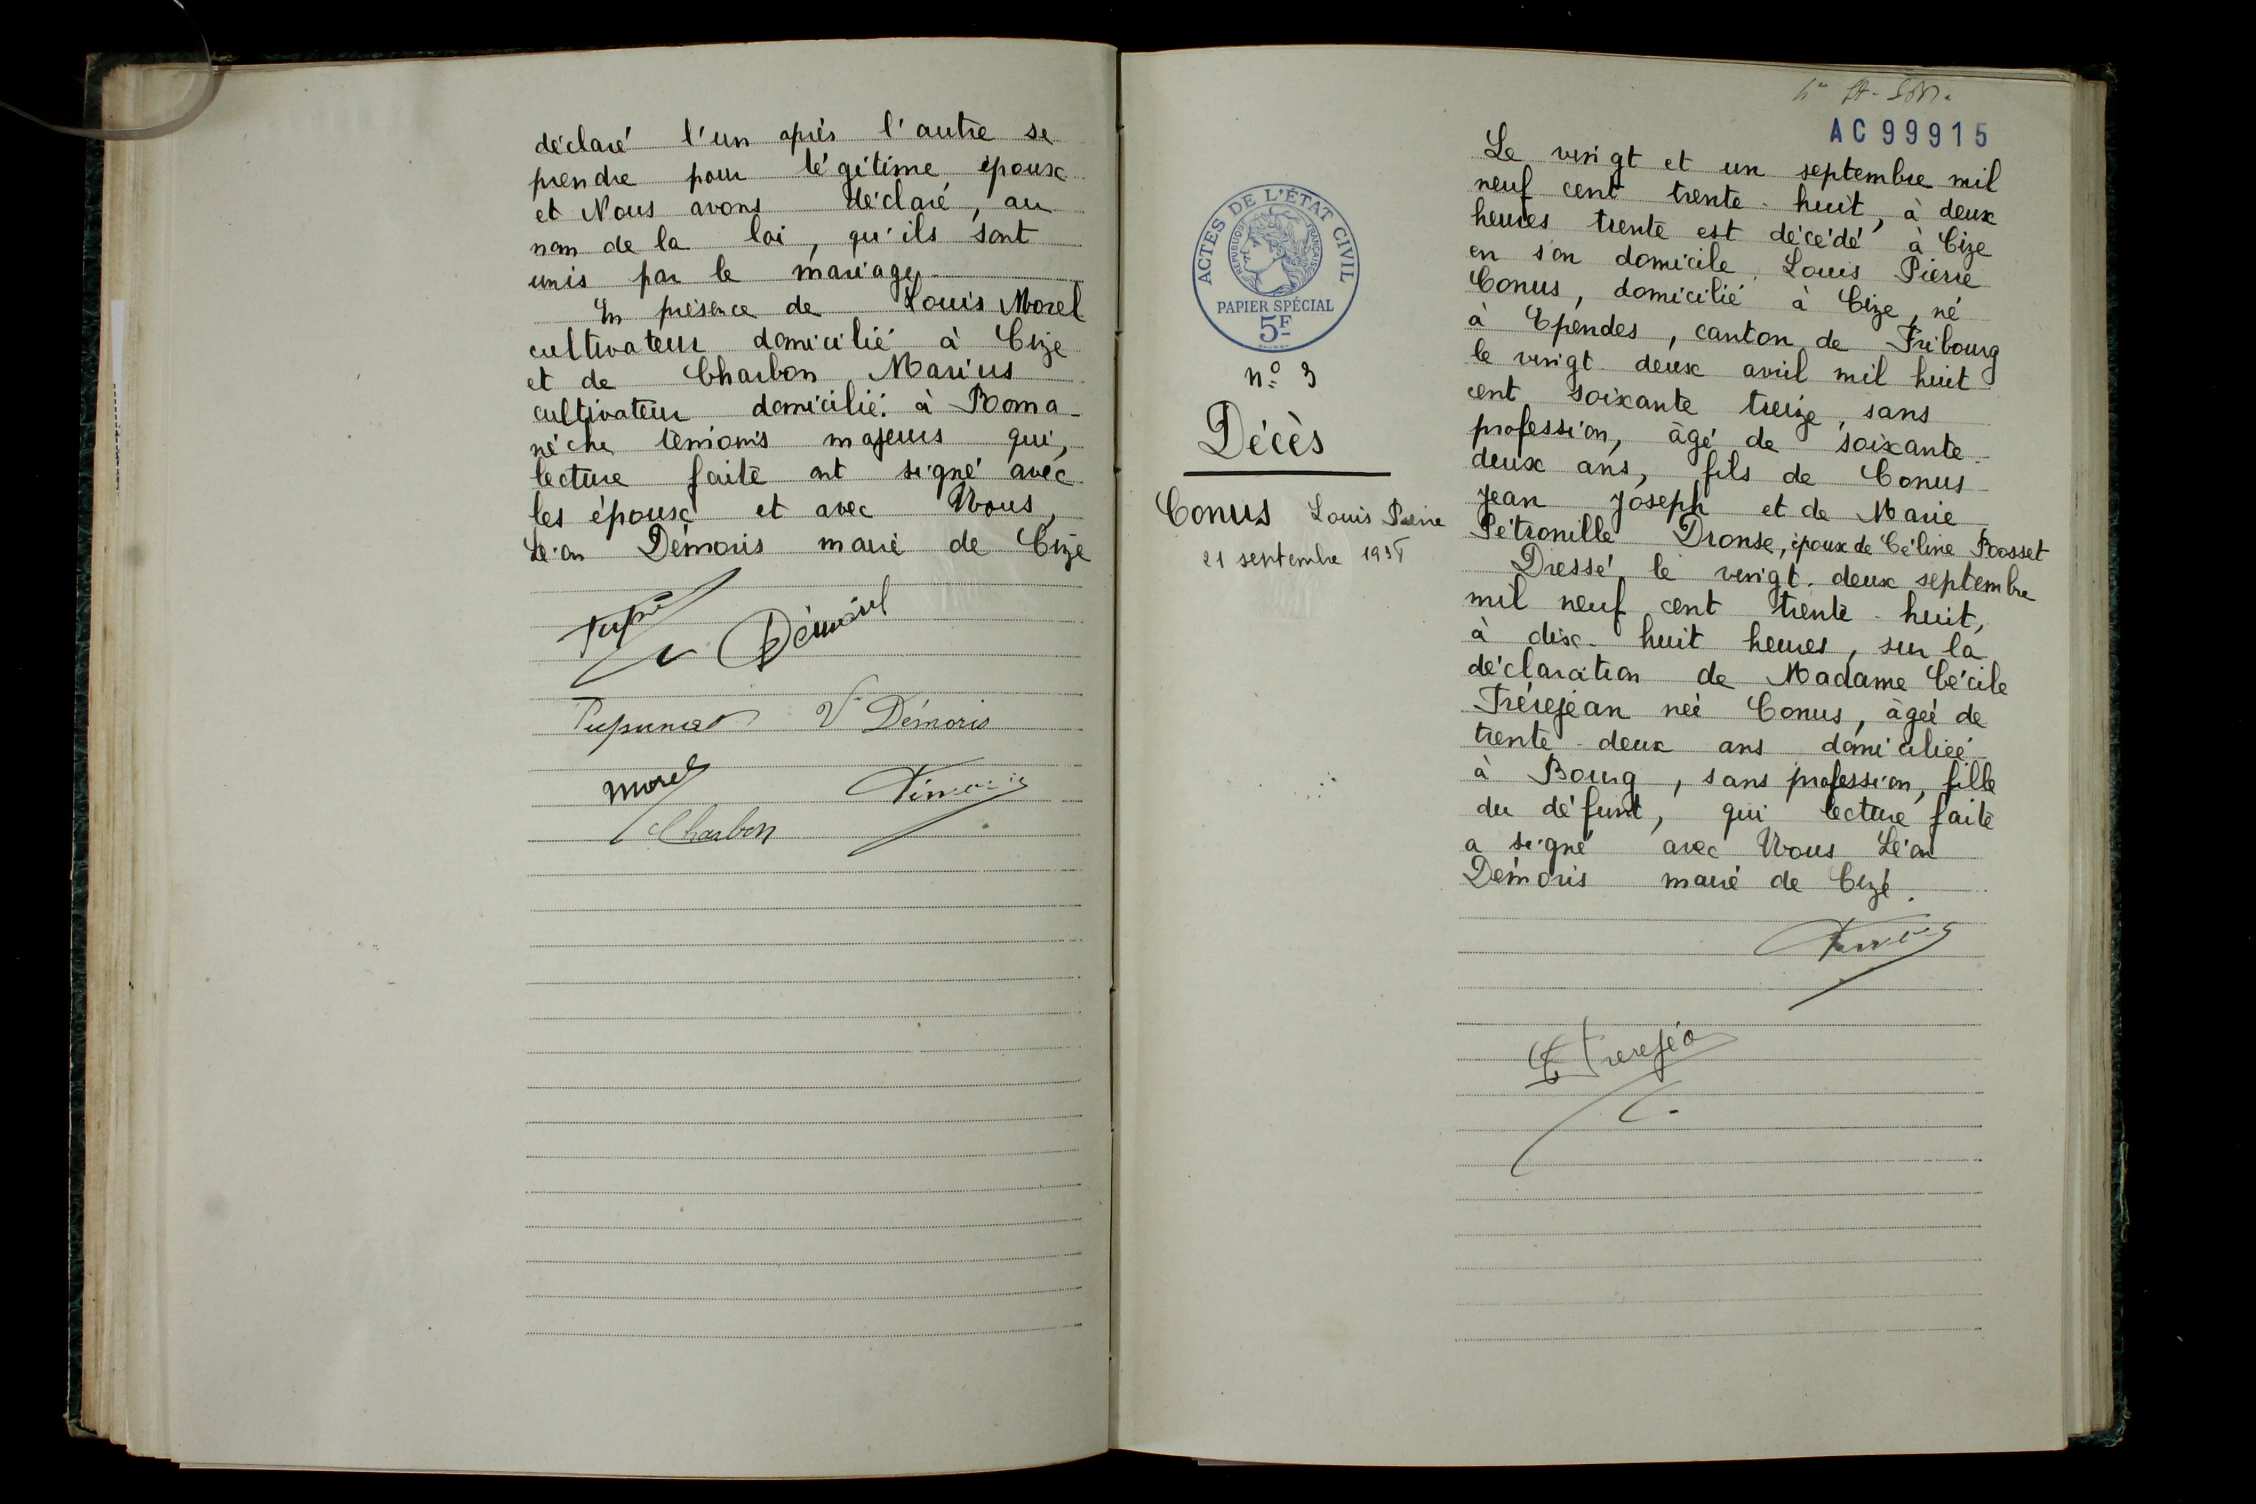 déclaré l'un après l'autre se
prendre pour légitime époux
et Nous avons déclaré, au
nom de la loi, qu'ils sont
unis par le mariage
En présence de Louis Morel
cultivateur domicilié à Cize
et de Charbon Marius
cultivateur domicilié à Roma-
nèche témoins majeurs qui,
lecture faite ont signé avec
les époux et avec Nous,
Léon Démoris maire de Cize
Démoris
V Démoris
Morel
Charbon
AC 99915
ACTES DE L'ÉTAT CIVIL
RÉPUBLIQUE FRANÇAISE
PAPIER SPÉCIAL
5F
n° 3
Décès
Conus Louis Pierre
21 septembre 1938
Le vingt et un septembre mil
neuf cent trente-huit, à deux
heures trente est décédé à Cize
en son domicile, Louis Pierre
Conus, domicilié à Cize, né
à Ependes, canton de Fribourg
le vingt-deux avril mil huit
cent soixante treize, sans
profession, âgé de soixante-
deux ans, fils de Conus
Jean Joseph et de Marie
Pétronille Dronse, époux de Céline Rosset
Dressé le vingt-deux septembre
mil neuf cent trente-huit,
à dix-huit heures, sur la
déclaration de Madame Cécile
Frérejean née Conus, âgée de
trente-deux ans domiciliée
à Bourg, sans profession, fille
du défunt, qui lecture faite
a signé avec Nous Léon
Démoris maire de Cize.